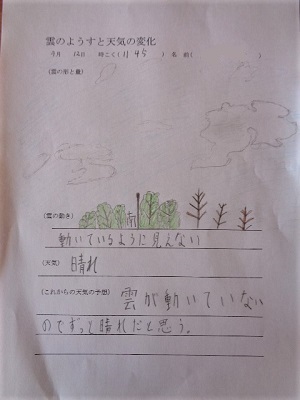 雲のようすと天気の変化
9月 12日 時こく( 11 45 ) 名前( )
(雲の形と量)
南
(雲の動き)
動いているように見えない
(天気) 晴れ
(これからの天気の予想) 雲が動いていない
のでずっと晴れだと思う。